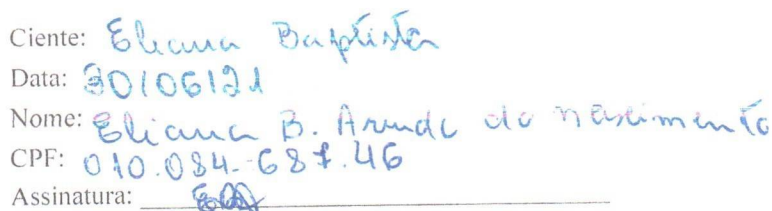 Ciente: Eliana Baptista
Data: 30/06/21
Nome: Eliana B. Arruda do Nascimento
CPF: 010.084.687.46
Assinatura: